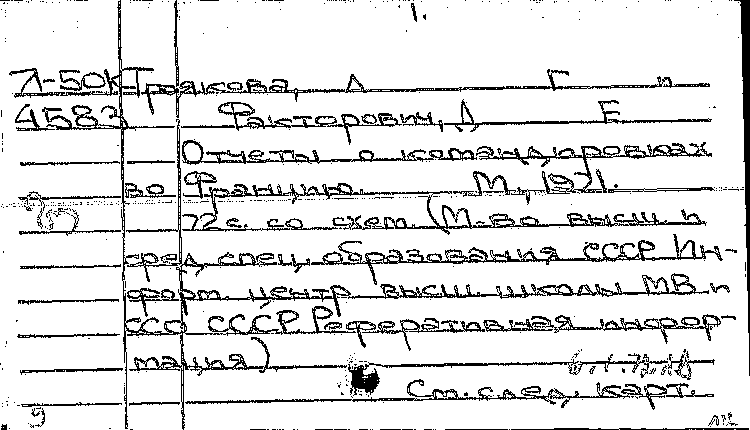 1.
Л-50К Троякова, Л Г и
4583 Факторович, Д Е
Отчеты о командировках
во Францию. М., 1971.
72 с. со схем. (М-во высш. и
сред. спец. образования СССР Ин-
форм. центр высш. школы МВ и
ССО СССР Реферативная инфор-
мация)
6.1.72
См. след. карт.
9